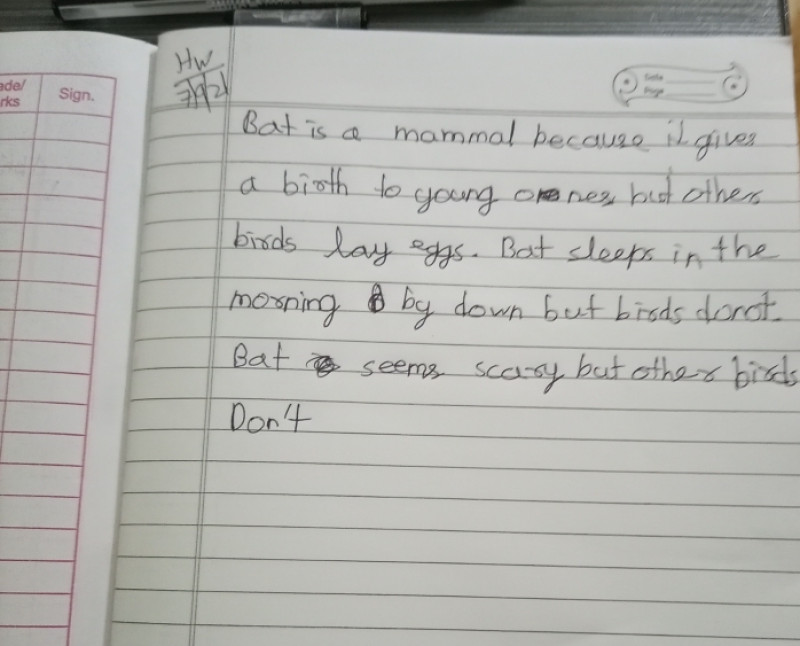 ade/
rks
Sign.
HW
7/9/21
Date
Page
Bat is a mammal because it gives
a birth to young ones but others
birds lay eggs. Bat sleeps in the
morning by down but birds donot.
Bat seems scary but other birds
Don't